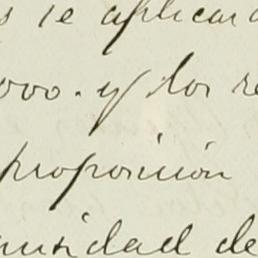 se aplicará
000. y los re
proporción
unidad de